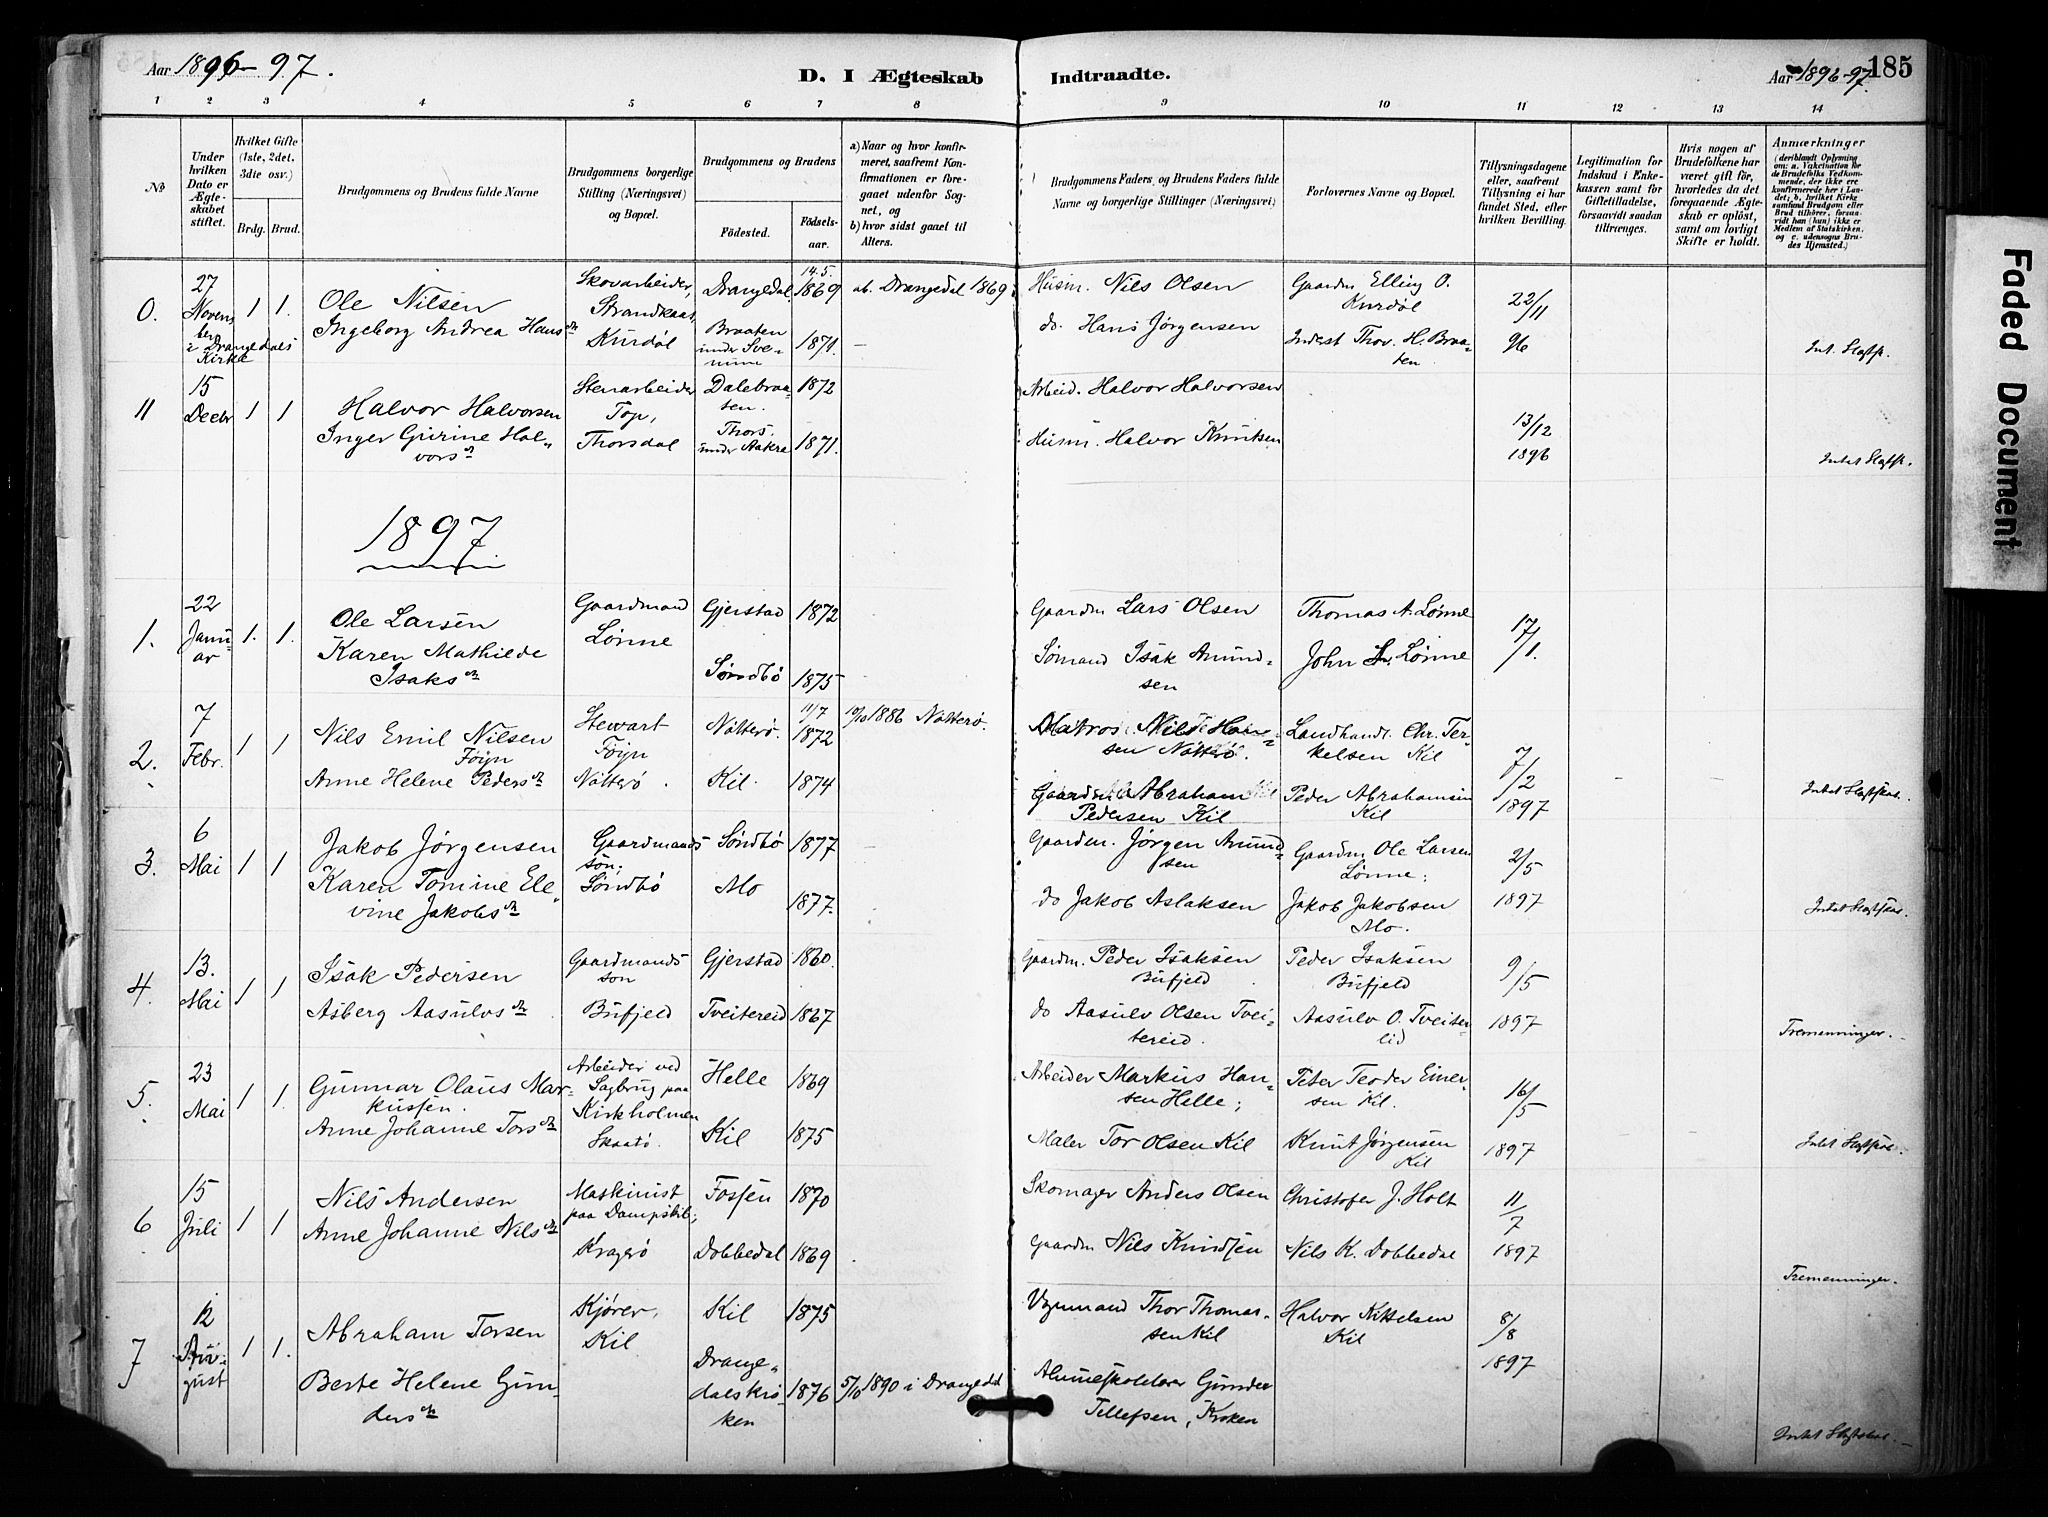 Aar 1896-97.
D. I Ægteskab Indtraadte.
Aar 1896-97. 185
1 2 3 4 5 6 7 8 9 10 11 12 13 14
No
Under hvilken Dato er Ægteskabet stiftet.
Hvilket Gifte (1ste, 2det, 3die osv.)
Brdg. Brud.
Brudgommens og Brudens fulde Navne
Brudgommens borgerlige Stilling (Næringsvei) og Bopæl.
Brudgommens og Brudens
Födested. Födselsaar.
a) Naar og hvor konfirmeret, saafremt Konfirmationen er foregaaet udenfor Sognet, og
b) hvor sidst gaaet til Alters.
Brudgommens Faders, og Brudens Faders fulde Navne og borgerlige Stillinger (Næringsvei)
Forlovernes Navne og Bopæl.
Tillysningsdagene eller, saafremt Tillysning ei har fundet Sted, efter hvilken Bevilling.
Legitimation for Indskud i Enkekassen samt for Giftetilladelse, forsaavidt saadan tiltrænges.
Hvis nogen af Brudefolkene har været gift för, hvorledes da det foregaaende Ægteskab er oplöst, samt om lovligt Skifte er holdt.
Anmærkninger
(deriblandt Oplysning om: a. Vakcination for de Brudefolks Vedkommende, der ikke ere konfirmerede her i Landet; b. hvilket Kirkesamfund Brudgom eller Brud tilhörer, forsaavidt han (hun) ikke er Medlem af Statskirken, og c. udensogns Brudes Hjemsted.)
0. 27 November i Drangedals Kirke 1 1.
Ole Nilsen
Ingeborg Andrea Hansdr
Skovarbeider, Strandkaat,
Kurdøl
Drangedal. 14.5. 1869 ab. Drangedal 1869
Braaten under Svenum 1871. –
Husm. Nils Olsen
do. Hans Jørgensen
Gaardm Elling O. Kurdøl
Inderst Thov. H. Braaten
22/11
96
Int. Slegtsk.
11 15 Decbr 1 1
Halvor Halvorsen
Inger Gurine Halvorsdr
Stenarbeider
Top,
Thorsdal
Dalebraaten. 1872
Thors. under Aakre 1871.
Arbeid. Halvor Halvorsen
Husm. Halvor Knutsen
13/12
1896
Intet Slegtsk.
1897.
1. 22 Januar 1. 1.
Ole Larsen
Karen Mathilde Isaksdr
Gaardmand
Lönne
Gjerstad 1872
Søndbö 1875
Gaardm Lars Olsen
Sömand Isak Amundsen
Thomas A. Lönne
John L. Lönne
17/1.
2. 7 Febr. 1 1
Nils Emil Nilsen Föyn
Anne Helene Pedersdr
Stewart
Föyn
Nötterö.
Nötterö. 11/7 1872 10/10 1886 Nötterö.
Kil. 1874
Matros Nils Hansen Nötterö.
Gaardm Abraham Pedersen Kil
Landhandl. Chr. Terkelsen Kil
Peder Abrahamsen Kil
7/2
1897
Intet Slegtskab.
3. 6 Mai 1 1
Jakob Jørgensen
Karen Tomine Elevine Jakobsdr
Gaardmands sön;
Söndbö
Söndbö 1877
Mo 1877.
Gaardm. Jörgen Amundsen
do Jakob Aslaksen
Gaardm Ole Larsen Lönne;
Jakob Jakobsen Mo.
2/5
1897
Intet Slegtskab.
4. 13. Mai 1 1
Isak Pedersen
Asberg Aasulvsdr
Gaardmands sön
Bufjeld
Gjerstad 1860.
Tveitereid 1867
Gaardm. Peder Isaksen Bufjeld
do Aasulv Olsen Tveitereid.
Peder Isaksen Bufjeld
Aasulv O. Tveiterlid
9/5
1897
Tremenninger.
5. 23 Mai 1 1.
Gunnar Olaus Markussen.
Anne Johanne Torsdr
Arbeider ved Sagbrug paa Kirkholmen Skaatö.
Helle 1869
Kil 1875
Arbeider Markus Hansen Helle;
Maler Tor Olsen Kil
Peter Teodor Einersen Kil.
Knut Jørgensen Kil
16/5
1897
Intet Slegtskab.
6 15 Juli 1 1
Nils Andersen
Anne Johanne Nilsdr
Maskinist paa Dampskib;
Kragerö
Fossen 1870
Dobbedal 1869
Skomager Anders Olsen
Gaardm Nils Knudsen
Christofer J. Holt
Nils K. Dobbedal
11/7
1897
Tremenninger.
7 12 August 1 1.
Abraham Torsen
Berte Helene Gundersdr
Kjörer,
Kil
Kil 1875
Drangedalskroken 1876 5/10 1890 i Drangedal
Vognmand Thor Thomassen Kil
Almueskolelærer Gunder Tellefsen, Kroken
Halvor Kittelsen Kil
8/8
1897
Intet Slegtskab.
Faded Document